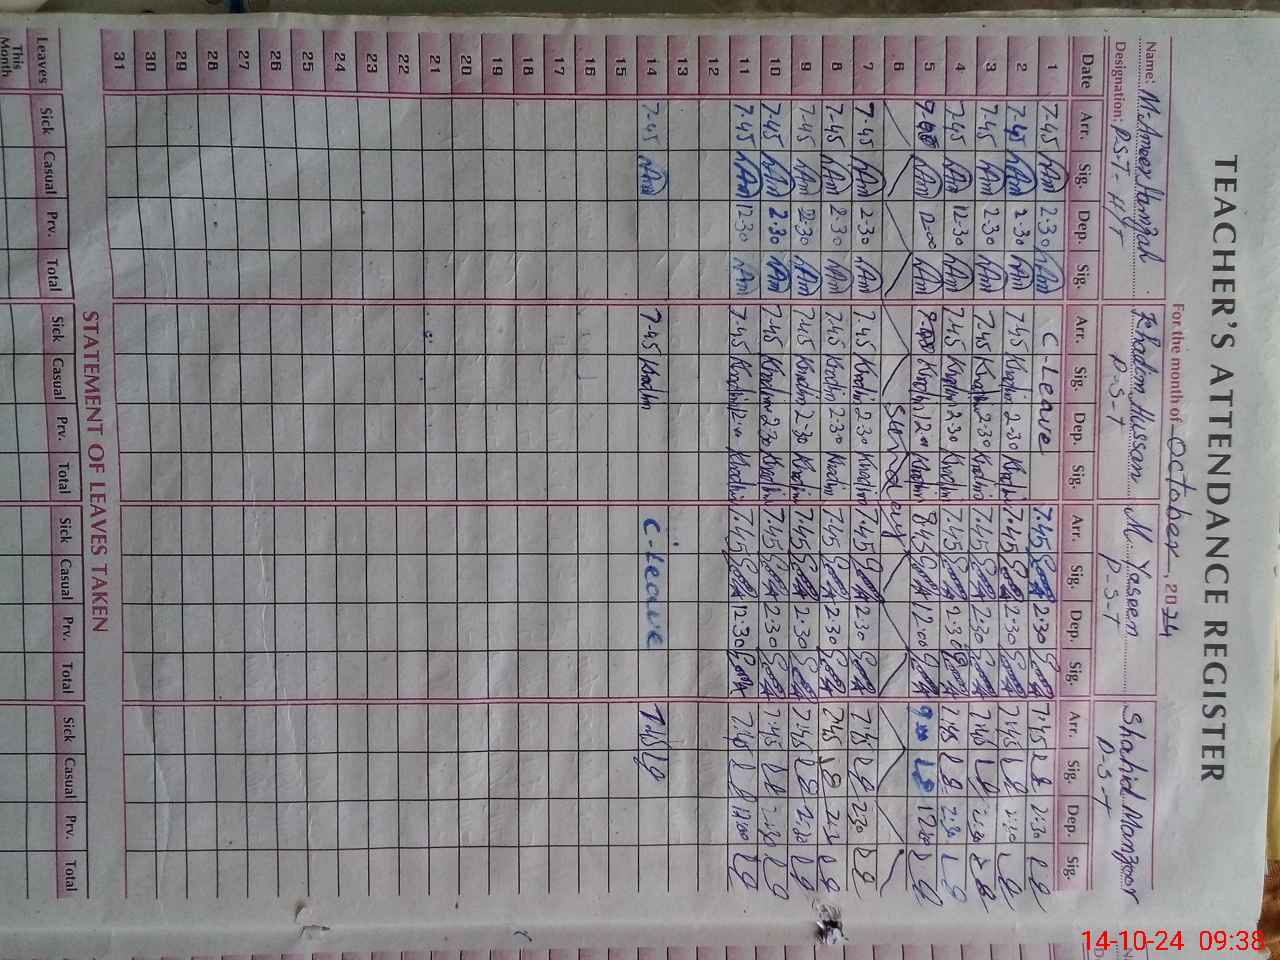 TEACHER'S ATTENDANCE REGISTER
For the month of October, 2024
Name: M. Ameer Hamzah Khadim Hussain M. Yaseen Shahid Manzoor
Designation: P.S.T - H/T P-S-T P-S-T P-S-T
Date Arr. Sig. Dep. Sig. Arr. Sig. Dep. Sig. Arr. Sig. Dep. Sig. Arr. Sig. Dep. Sig.
1 7-45 HAm 2.30 HAm C-Leave 7.45 2.30 7:45 2-30
2 7-45 HAm 2.30 HAm 7.45 Khadim 2.30 Khadim 7.45 2.30 7:45 2:30
3 7-45 HAm 2.30 HAm 7.45 Khadim 2.30 Khadim 7.45 2.30 7:45 2:30
4 7-45 HAm 12.30 HAm 7.45 Khadim Khadim 7.45 2.30 7:45 2:30
5 HAm 12.00 HAm Khadim 12.00 Khadim 8.45 12.00 9:00 12:00
6 Sunday
7 7-45 HAm 2.30 HAm 7.45 Khadim 2.30 Khadim 7.45 2.30 7:45 2:30
8 7-45 HAm 2.30 HAm 7.45 Khadim 2.30 Khadim 7.45 2.30 7:45 2:30
9 7-45 HAm 2.30 HAm 7.45 Khadim 2.30 Khadim 7.45 2.30 7:45 2:30
10 7-45 HAm 2.30 HAm 7.45 Khadim 2.30 Khadim 7.45 2.30 7:45 2:30
11 7-45 HAm 12.30 HAm 7.45 Khadim Khadim 7.45 12.30 7:45 12:00
12
13
14 7-45 HAm 7.45 Khadim C-Leave 7:45
15
16
17
18
19
20
21
22
23
24
25
26
27
28
29
30
31
STATEMENT OF LEAVES TAKEN
Leaves Sick Casual Prv. Total Sick Casual Prv. Total Sick Casual Prv. Total Sick Casual Prv. Total
This Month
14-10-24 09:38